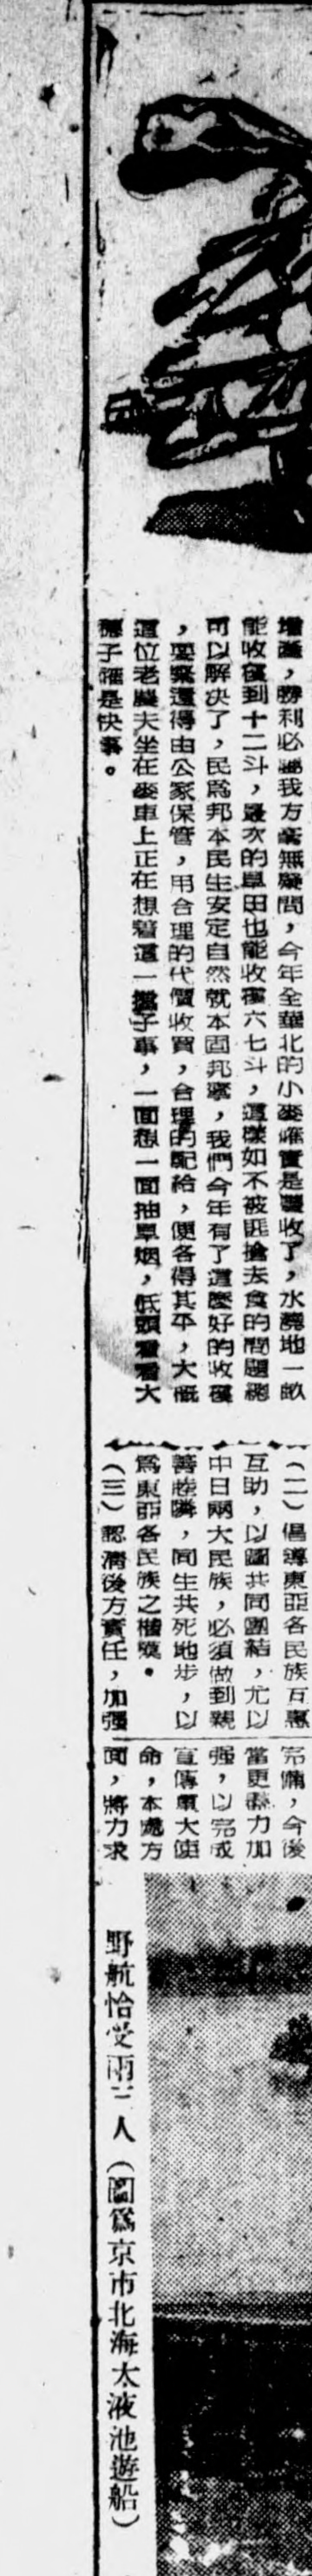 增產，勝利必屬我方毫無疑問，今年全華北的小麥確實是豐收了，水澆地一畝
能收穫到十二斗，最次的旱田也能收穫六七斗，這樣如不被匪搶去食的問題總
可以解決了，民爲邦本民生安定自然就本固邦寧，我們今年有了這麼好的收穫
，要緊還得由公家保管，用合理的代價收買，合理的配給，便各得其平，大概
這位老農夫坐在麥車上正在想着這一檔子事，一面想一面抽旱烟，低頭看看大
穗子確是快事。
（二）倡導東亞各民族互惠
互助，以圖共同團結，尤以
中日兩大民族，必須做到親
善睦隣，同生共死地步，以
爲東亞各民族之楷模。
（三）認清後方責任，加强
完備，今後
當更努力加
强，以完成
宣傳重大使
命，本處方
面，將力求
野航恰受兩三人（圖爲京市北海太液池遊船）